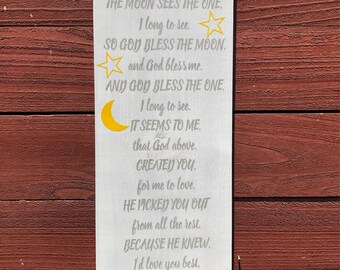 THE MOON SEES THE ONE,
I long to see.
SO GOD BLESS THE MOON,
and God bless me.
AND GOD BLESS THE ONE,
I long to see.
IT SEEMS TO ME,
that God above,
CREATED YOU,
for me to love.
HE PICKED YOU OUT
from all the rest.
BECAUSE HE KNEW,
I'd love you best.